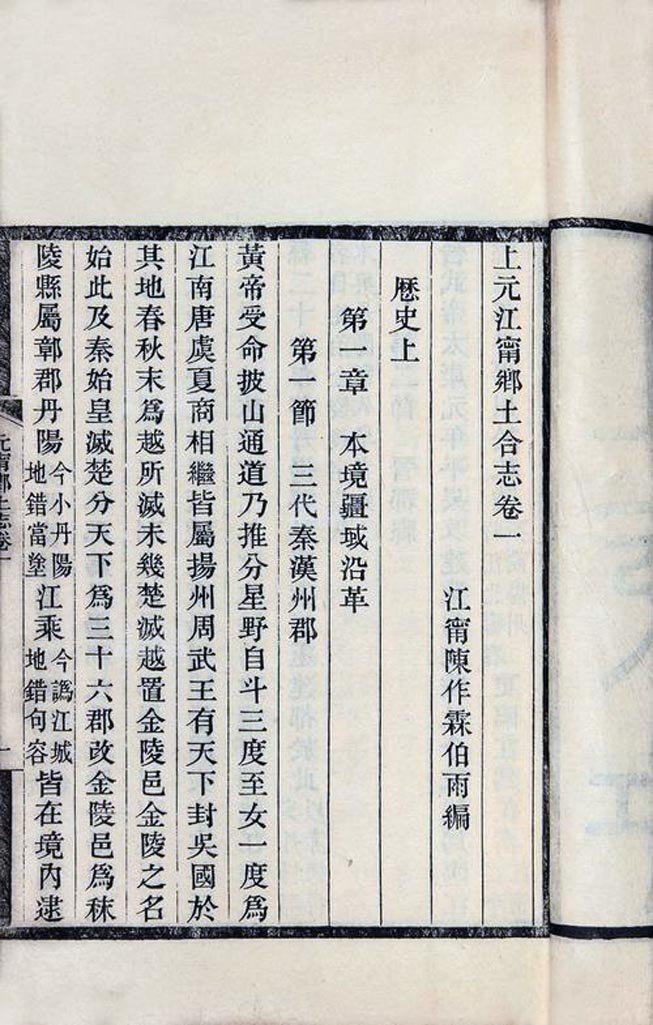 上元江甯鄉土合志卷一
江甯陳作霖伯雨編
歴史上
第一章 本境疆域沿革
第一節 三代秦漢州郡
黃帝受命披山通道乃推分星野自斗三度至女一度爲
江南唐虞夏商相繼皆屬揚州周武王有天下封吳國於
其地春秋末爲越所滅未幾楚滅越置金陵邑金陵之名
始此及秦始皇滅楚分天下爲三十六郡改金陵邑爲秣
陵縣屬鄣郡丹陽今小丹陽地錯當塗江乘今譌江城地錯句容皆在境內逮
元甯鄉土志卷一
一